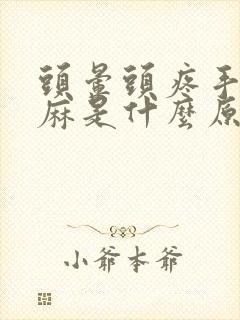 頭暈頭疼手
麻是什麼原
小爺本爺